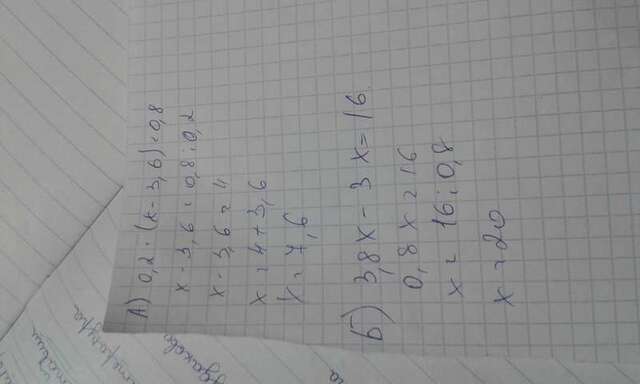 А) 0,2 · (x - 3,6) = 0,8
x - 3,6 = 0,8 : 0,2
x - 3,6 = 4
x = 4 + 3,6
x = 7,6
Б) 3,8x - 3x = 16
0,8x = 16
x = 16 : 0,8
x = 20